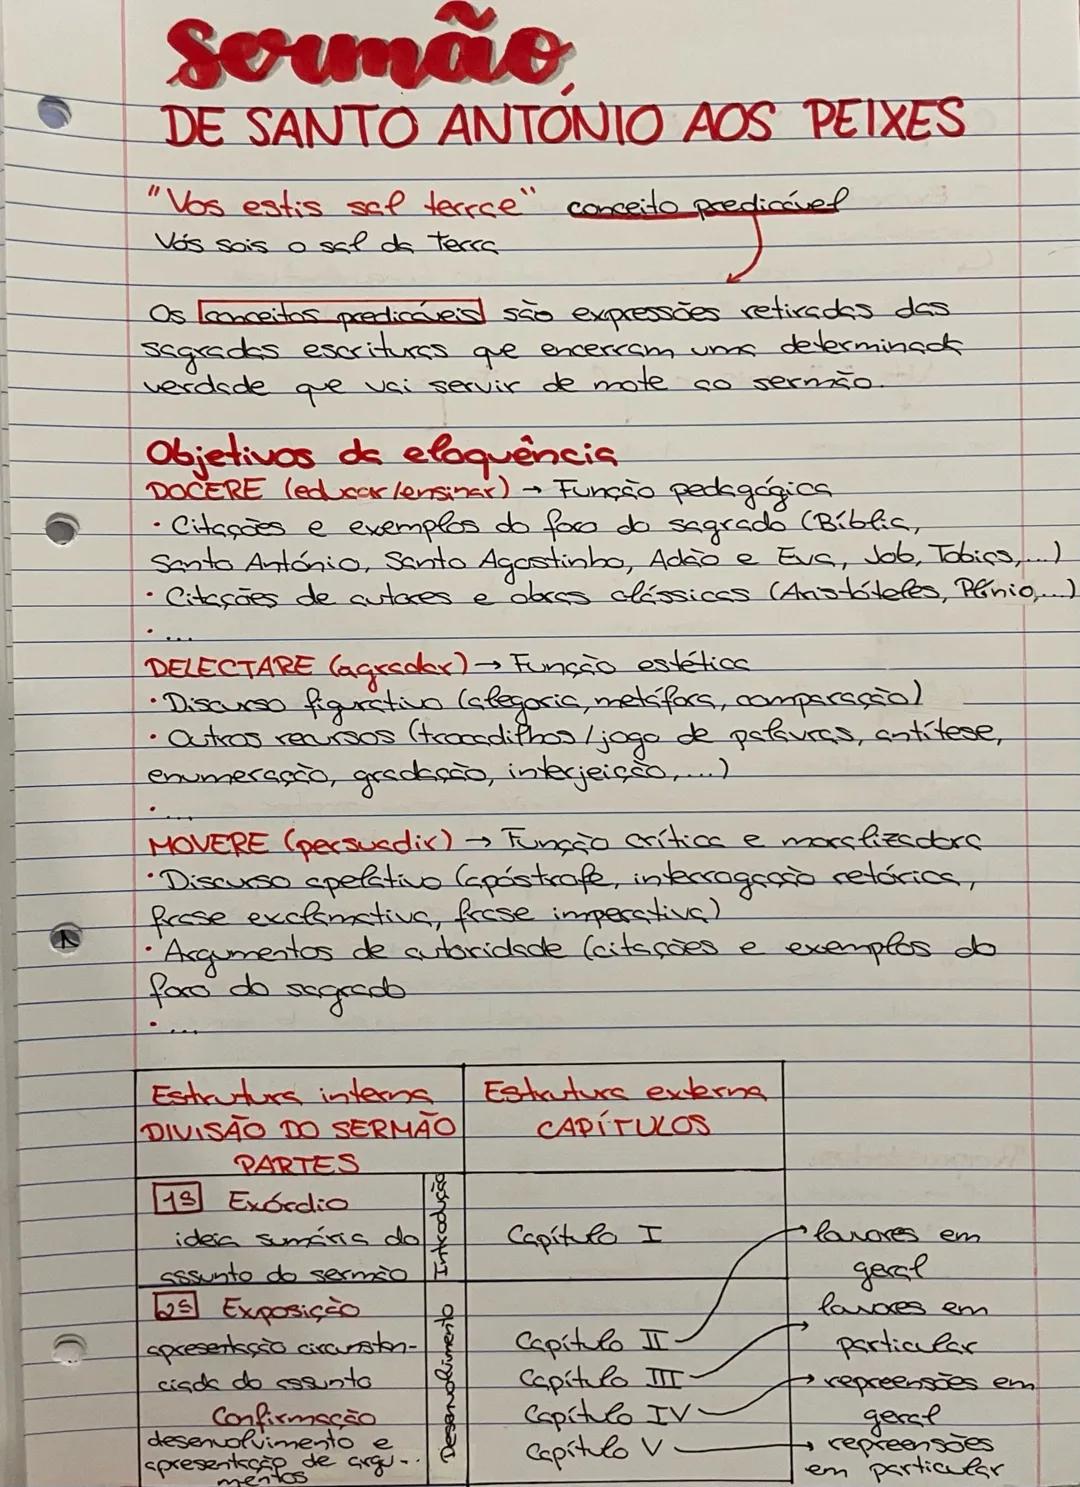 Sermão
DE SANTO ANTÓNIO AOS PEIXES
"Vos estis sal terrae" conceito predicável
Vós sois o sal da Terra
Os conceitos predicáveis são expressões retiradas das
sagradas escrituras que encerram uma determinada
verdade que vai servir de mote ao sermão.
Objetivos da eloquência
DOCERE (educar/ensinar) → Função pedagógica
· Citações e exemplos do foro do sagrado (Bíblia,
Santo António, Santo Agostinho, Adão e Eva, Job, Tobias,...)
· Citações de autores e obras clássicas (Aristóteles, Plínio,...)
· ...
DELECTARE (agradar) → Função estética
· Discurso figurativo (alegoria, metáfora, comparação)
· Outros recursos (trocadilhos/jogo de palavras, antítese,
enumeração, gradação, interjeição,...)
· ...
MOVERE (persuadir) → Função crítica e moralizadora
· Discurso apelativo (apóstrofe, interrogação retórica,
frase exclamativa, frase imperativa)
· Argumentos de autoridade (citações e exemplos do
foro do sagrado
· ...
Estrutura interna
DIVISÃO DO SERMÃO
PARTES
Estrutura externa
CAPÍTULOS
1ª Exórdio
ideia sumária do
assunto do sermão
Introdução
Capítulo I
2ª Exposição
apresentação circunstan-
ciada do assunto
Confirmação
desenvolvimento e
apresentação de argu-
mentos
Desenvolvimento
Capítulo II
Capítulo III
Capítulo IV
Capítulo V
→ louvores em
geral
louvores em
→ particular
→ repreensões em
geral
→ repreensões
em particular